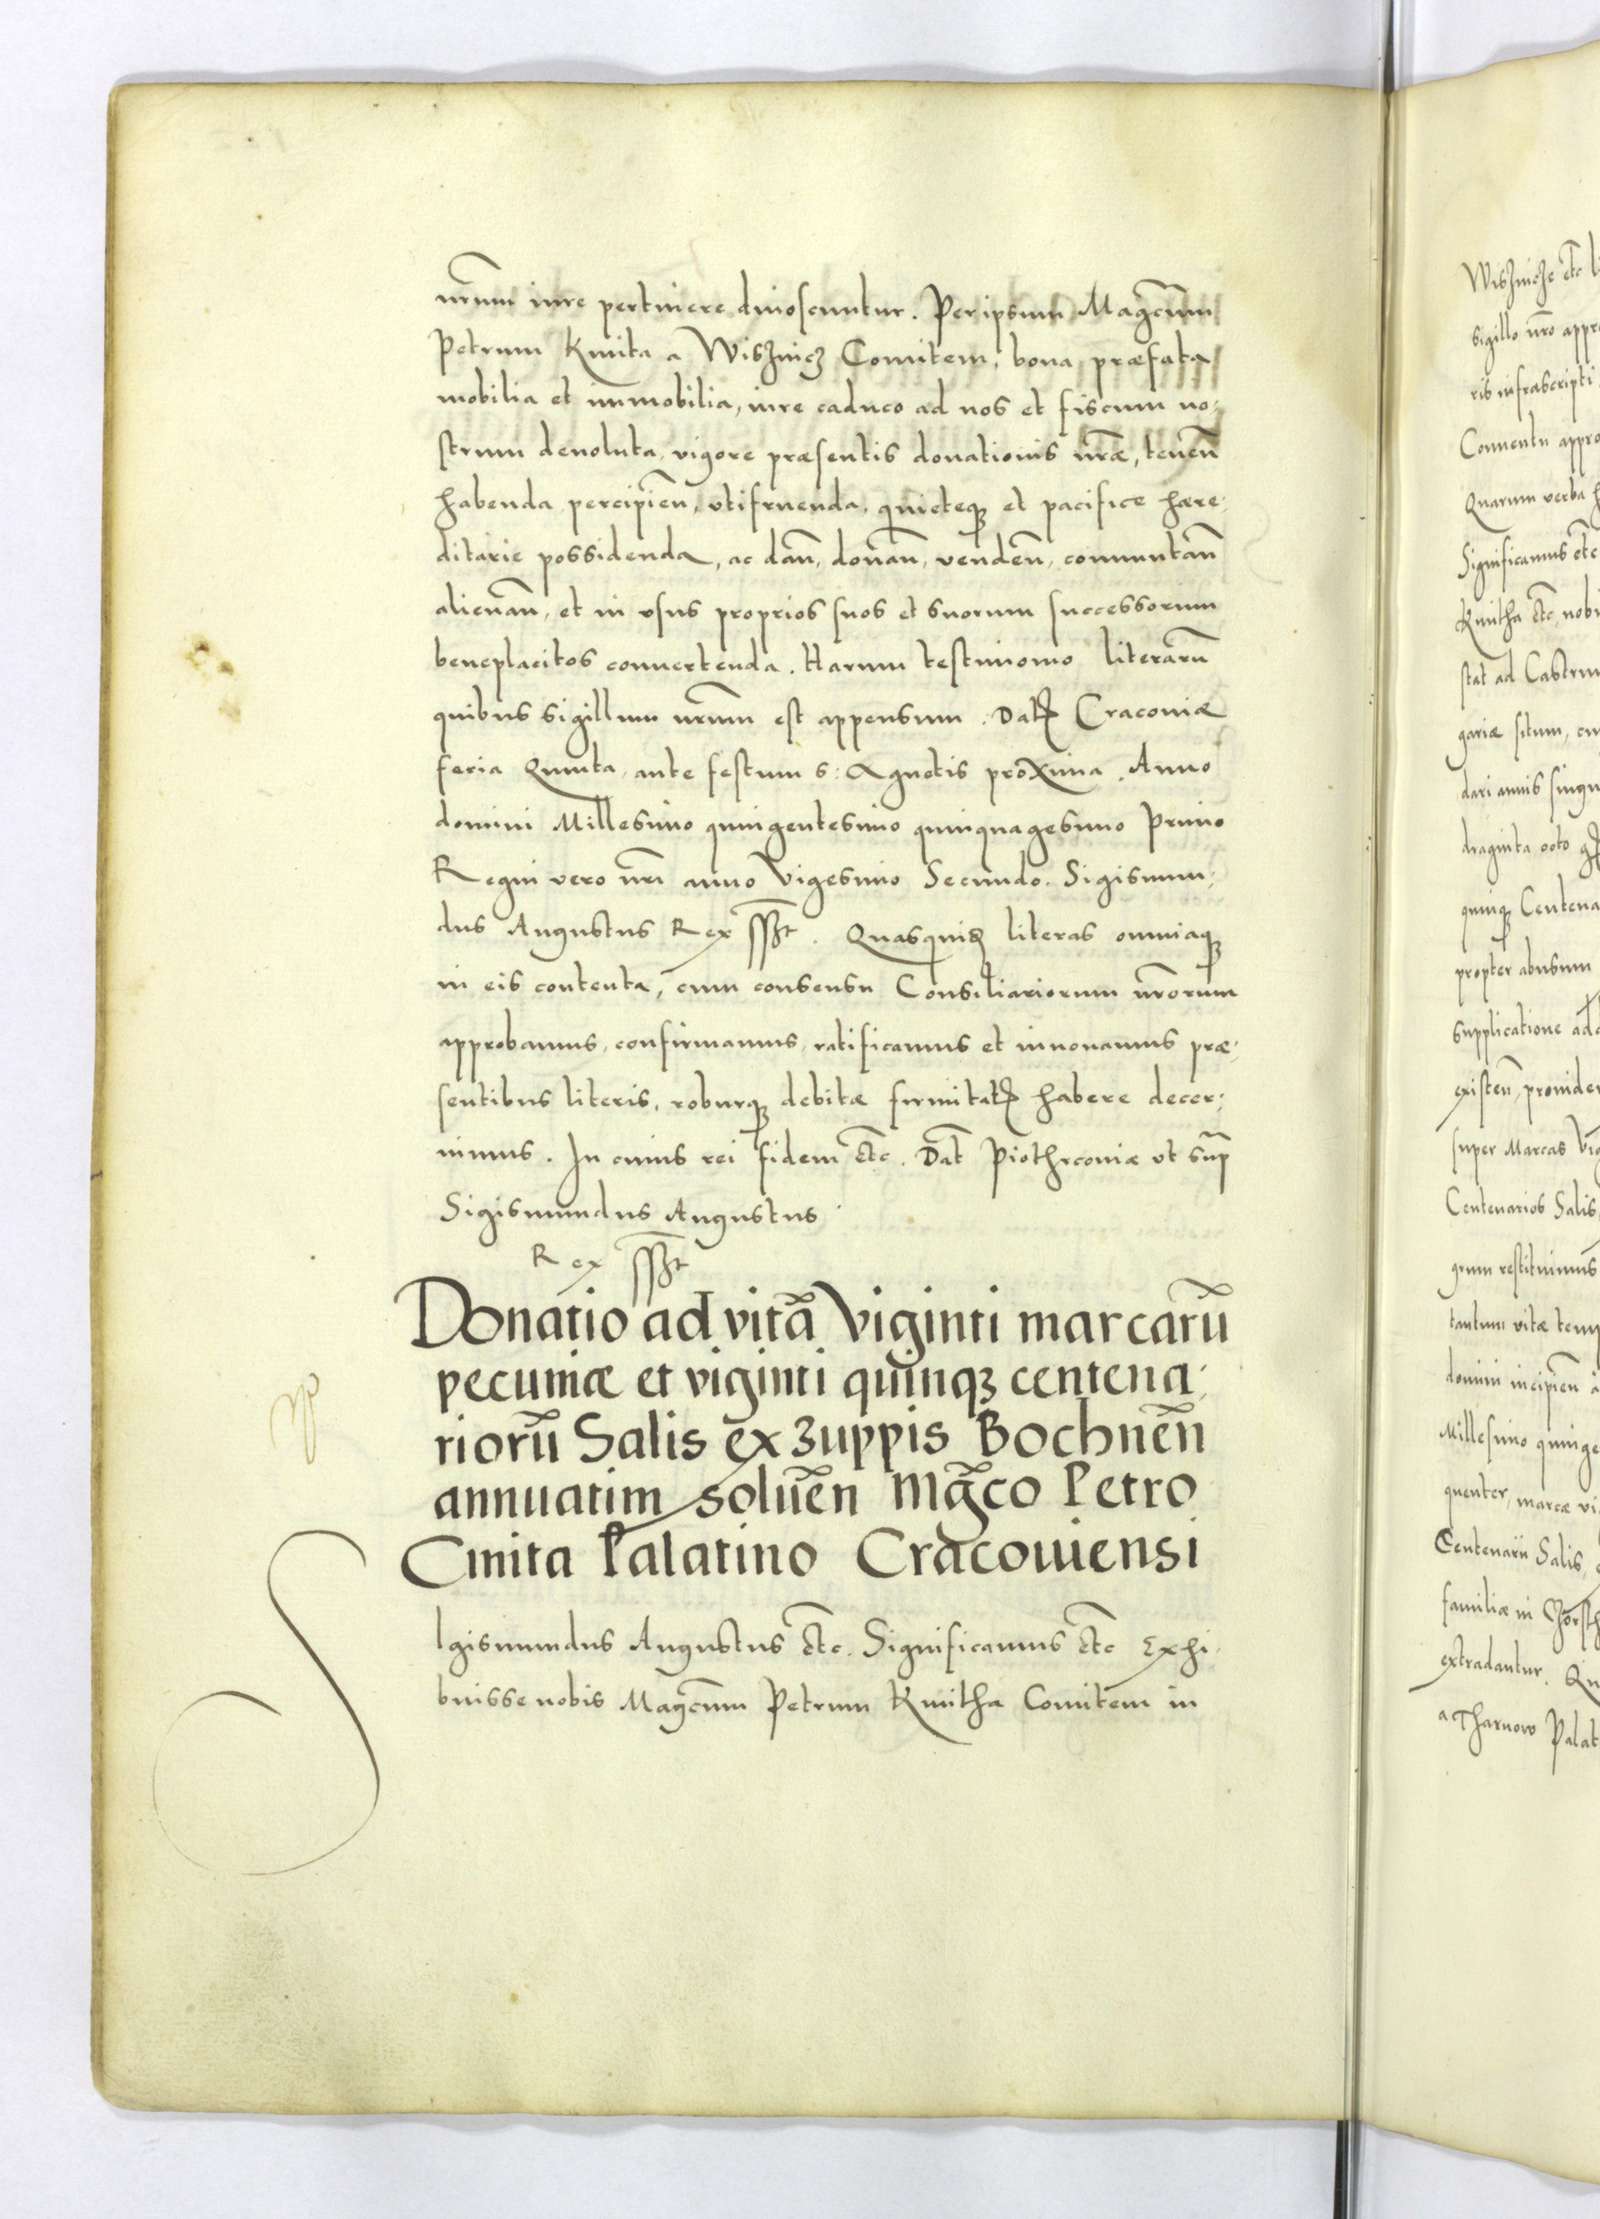 nrm̃ iure pertinere dinoscuntur. Per ipsum Magcum̃
Petrum Kmita a Wisznicz Comitem, bona præfata
mobilia et immobilia, iure caduco ad nos et fiscum no-
strum deuoluta, vigore præsentis donationis nr̃æ, teneñ
habenda percipieñ, vtifruenda, quieteqꝫ et pacifice hære-
ditarie possidenda, ac dañ, donañ, vendeñ, comutañ
alienañ, et in vsus proprios suos et suorum successorum
beneplacitos conuertenda. Harum testimonio literarũ
quibus sigillum nrũm est appensum. Datꝭ Cracouiæ
feria Quinta, ante festum S: Agnetis proxima. Anno
domini Millesimo quingentesimo quinquagesimo Primo
Regni vero nr̃i anno Vigesimo Secundo. Sigismun-
dus Augustus Rex sst. Quasquidꝫ literas omniaqꝫ
in eis contenta, cum consensu Consiliariorum nr̃orum
approbamus, confirmamus, ratificamus et innouamus præ-
sentibus literis, roburqꝫ debitæ firmitatꝭ habere decer-
nimus. In cuius rei fidem etc̃. Dat̃ Piothrcouiæ vt sup̃
Sigismundus Augustus
Rex sst
Donatio ad vitã Viginti marcarũ
pecuniæ et viginti quinqꝫ centena-
riorũ Salis ex zuppis Bochneñ
annuatim soluẽn Mgc̃o Petro
Cmita Palatino Cracouiensi
SIgismundus Augustus etc̃. Significamus etc̃ Exhi-
buisse nobis Magcum̃ Petrum Kmitha Comitem in
Wisznicze etc̃
sigillo nr̃o
ris infrascripti
Conuentu
Quarum verba
Significamus etc̃
Kmitha etc̃
stat ad
gariæ situm,
dari annis
draginta octo
quinqꝫ
propter abusum
supplicatione
existeñ,
super Marcas
Centenarios Salis,
grum restituimus
tantum vitæ
domini incipieñ
Millesimo
quenter, marcæ
Centenarii Salis,
familiæ in
extradantur.
a Tharnow